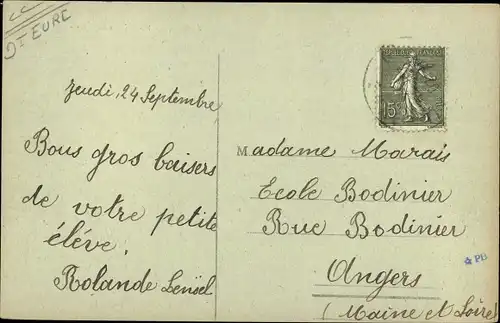 Dt EURE
Jeudi, 24 Septembre,
Bous gros baisers
de votre petite
élève,
Rolande
Madame Marais
Ecole Bodinier
Rue Bodinier
Angers
(Maine et Loire)
15c
PB